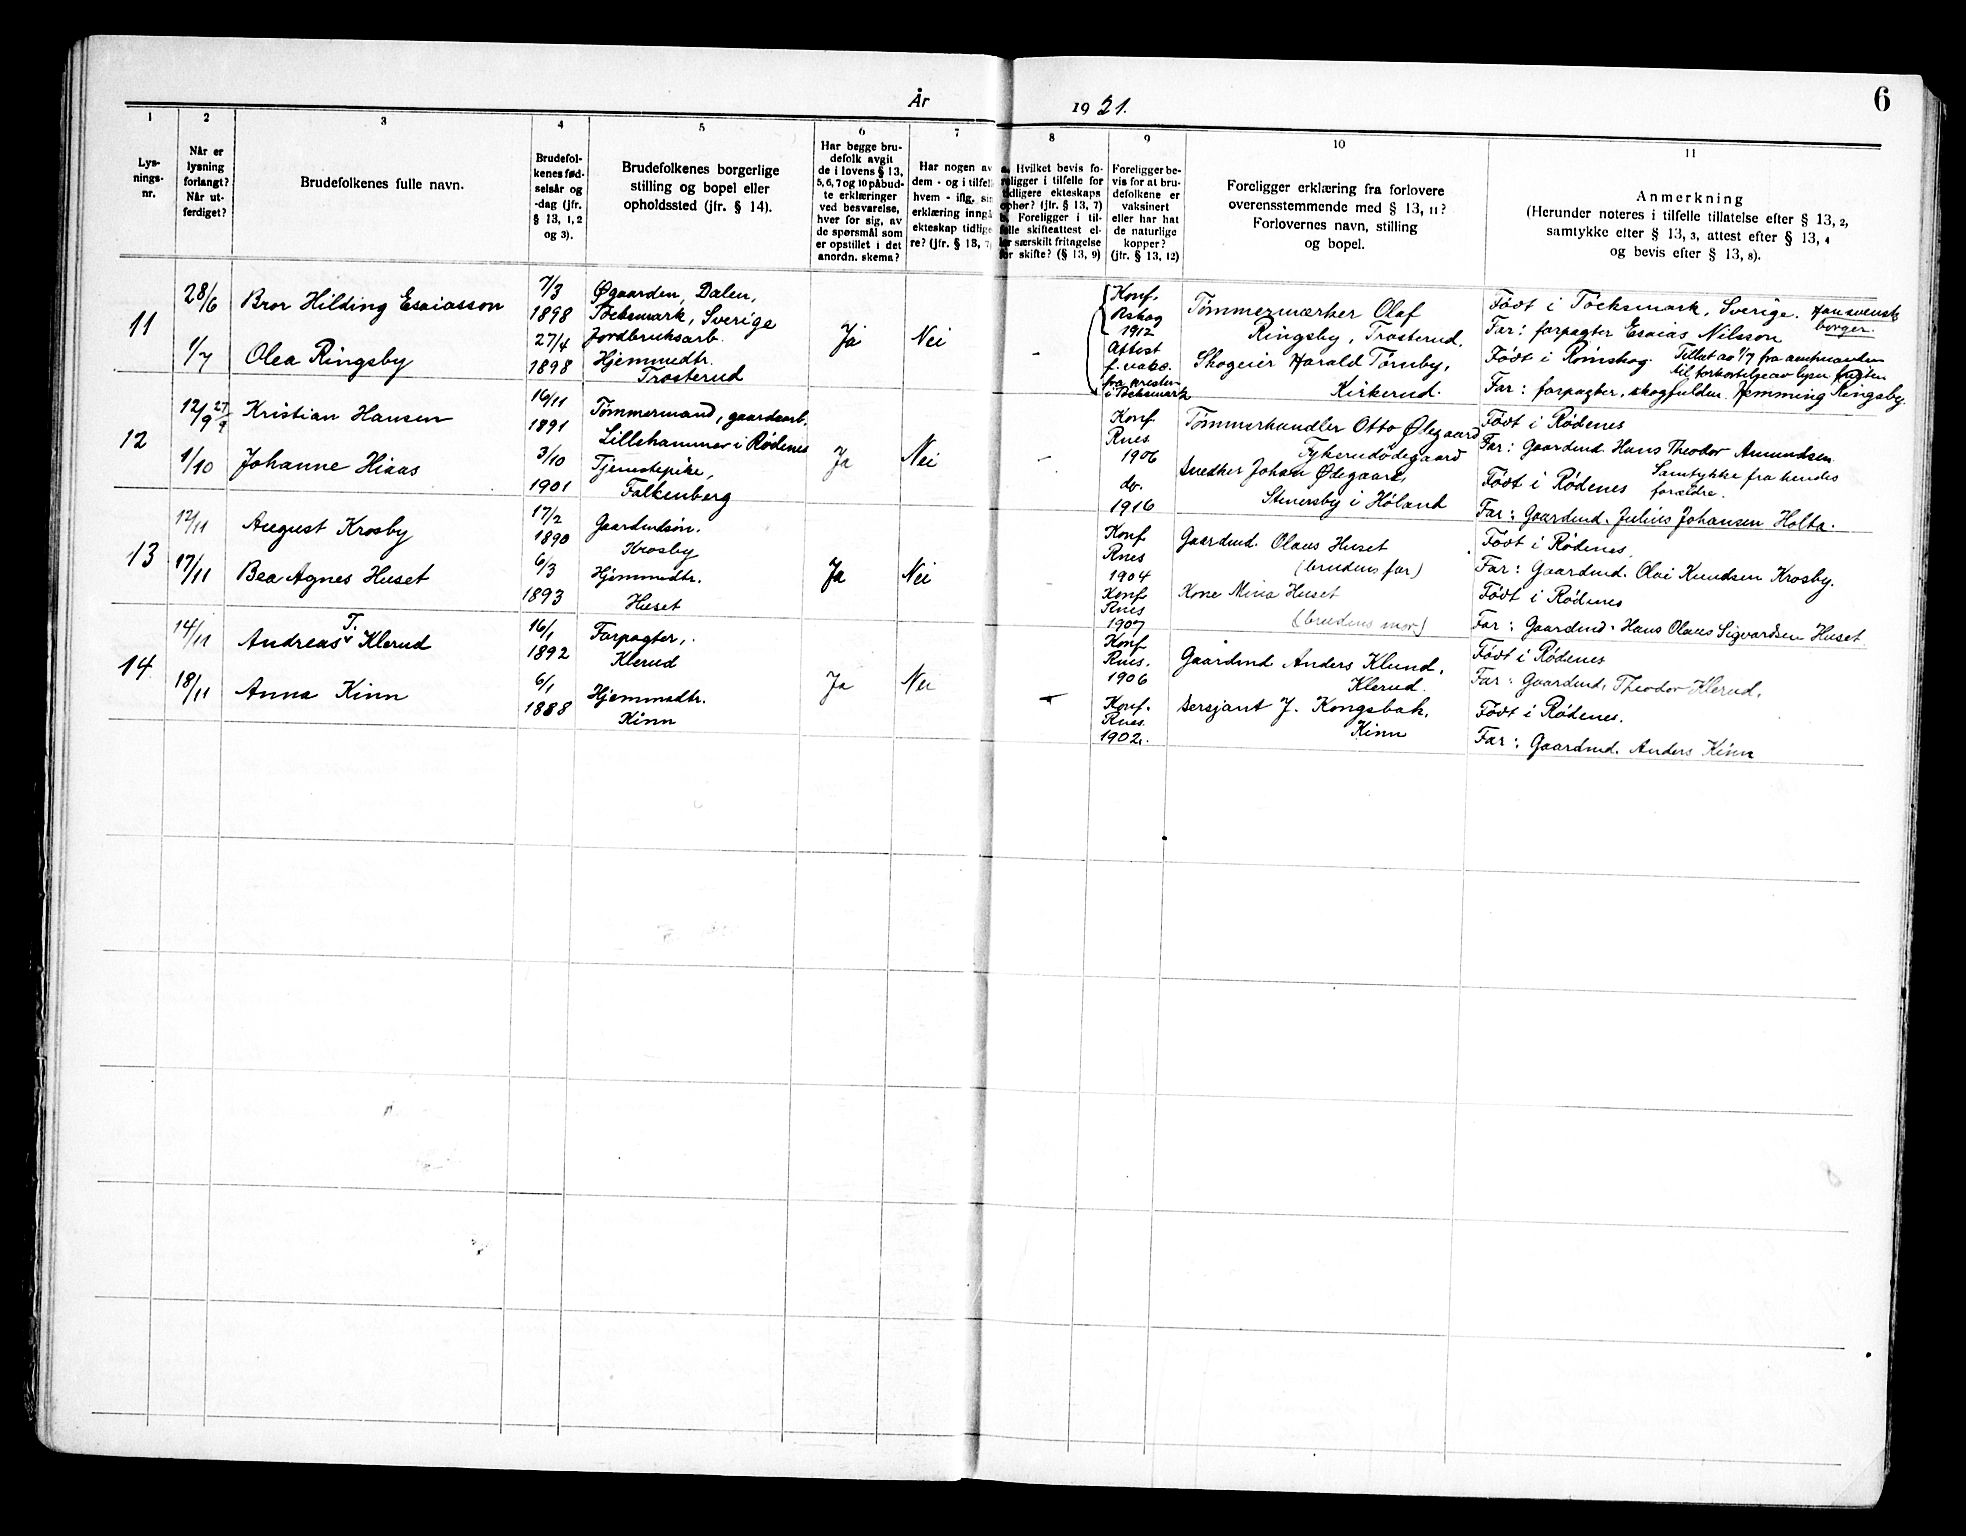 År 1921. 6
1 2 3 4 5 6 7 8 9 10 11
Lys-
nings-
nr.
Når er
lysning
forlangt?
Når ut-
ferdiget?
Brudefolkenes fulle navn.
Brudefol-
kenes fød-
selsår og
-dag (jfr.
§ 13, 1, 2
og 3).
Brudefolkenes borgerlige
stilling og bopel eller
opholdssted (jfr. § 14).
Har begge bru-
defolk avgit
de i lovens § 13,
5, 6, 7 og 10 påbud-
te erklæringer
ved besvarelse,
hver for sig, av
de spørsmål som
er opstillet i det
anordn. skema?
Har nogen av
dem - og i tilfel
hvem - iflg. sin
erklæring inngå
ekteskap tidlige
re? (jfr. § 13, 7)
a. Hvilket bevis fo-
religger i tilfelle for
tidligere ekteskaps
opher? (jfr. § 13, 7)
b. Foreligger i til-
felle skifteattest el-
ler særskilt fritagelse
for skifte? (§ 13, 9)
Foreligger be-
vis for at bru-
defolkene er
vaksinert
eller har hat
de naturlige
kopper?
(jfr. § 13, 12)
Foreligger erklæring fra forlovere
overensstemmende med § 13, 11?
Forlovernes navn, stilling
og bopel.
Anmerkning
(Herunder noteres i tilfelle tillatelse efter § 13, 2,
samtykke efter § 13, 3, attest efter § 13, 4
og bevis efter § 13, 8).
11
28/6
1/7
Bror Hilding Esaiasson
Olea Ringsby
7/3
1898
27/4
1898
Øgaarden, Dalen,
Töcksmark, Sverige
Jordbruksarb.
Hjemmedtr.
Trosterud
Ja
Nei
-
Konf.
1912
Attest
f. vaks.
fra presten
i Töcksmark
Tømmermærker Olaf
Ringsby, Trosterud.
Skogeier Harald Tørnby,
Kirkerud.
Født i Töcksmark, Sverige. Han svensk
borger.
Far: forpagter Esaias Nilsson
Født i Rømskog. Tillat av 1/7 fra amtmanden
til forkortelse av lysn. fristen
Far: forpagter, skogfulden. Hemming Ringsby
12
12/9 27/9
1/10
Kristian Hansen
Johanne Hiaas
16/11
1891
3/10
1901
Tømmermand, gaardsarb.
Lillehammer i Rødenes
Tjenestepike,
Falkenberg
Ja
Nei
-
Konf
Rnes
1906
do.
1916
Tømmerhandler Otto Ølegaard
Tykerudødegaard
Snedker Johan Ødegaard,
Stenersby i Høland
Født i Rødenes
Far: Gaardmd. Hans Theodor Amundsen
Født i Rødenes Samtykke fra hendes
forældre.
Far: Gaardmd. Julius Johansen Holta.
13
12/11
17/11
August Krosby
Bea Agnes Huset
17/2
1890
6/3
1893
Gaardmdsøn.
Krosby
Hjemmedtr.
Huset
Ja
Nei
-
Konf
Rnes
1904
Konf
Rnes
1907
Gaardmd. Olaus Huset
(brudens far)
Kone Mina Huset
(brudens mor)
Født i Rødenes.
Far: Gaardmd. Olai Knudsen Krosby.
Født i Rødenes
Far: Gaardmd. Hans Olaus Sigvardsen Huset
14
14/11
18/11
Andreas T. Klerud
Anna Kinn
16/1
1892
6/1
1888
Forpagter,
Klerud
Hjemmedtr.
Kinn
Ja
Nei
-
Konf
Rnes.
1906
Konf.
Rnes.
1902.
Gaardmd Anders Klund,
Klerud.
Sersjant J. Kongsbak,
Kinn
Født i Rødenes
Far: Gaardmd. Theodor Klerud.
Født i Rødenes.
Far: Gaardmd. Anders Kinn